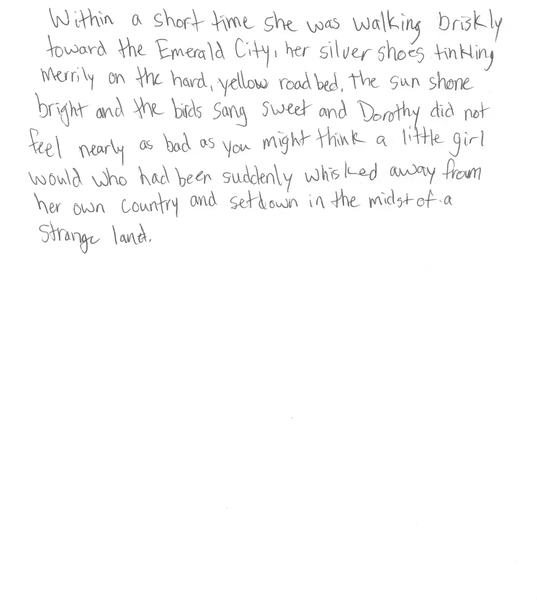 Within a short time she was walking briskly
toward the Emerald City, her silver shoes tinkling
Merrily on the hard, yellow roadbed, the sun shone
bright and the birds sang sweet and Dorothy did not
feel nearly as bad as you might think a little girl
would who had been suddenly whisked away from
her own country and set down in the midst of a
strange land.